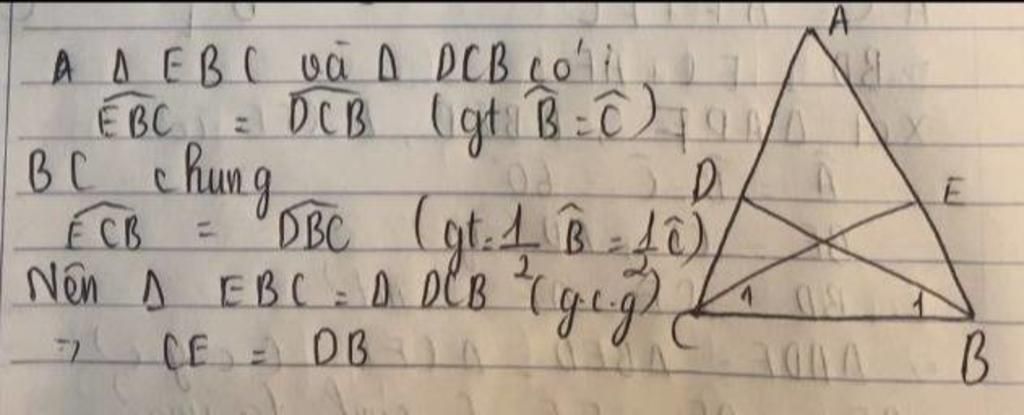 Δ EBC và Δ DCB có:
EBC = DCB (gt B̂ = Ĉ)
BC chung
ECB = DBC (gt = 1/2 B̂ = 1/2 Ĉ)
Nên Δ EBC = Δ DCB (g.c.g)
⇒ CE = DB
A
D
E
1
1
C
B